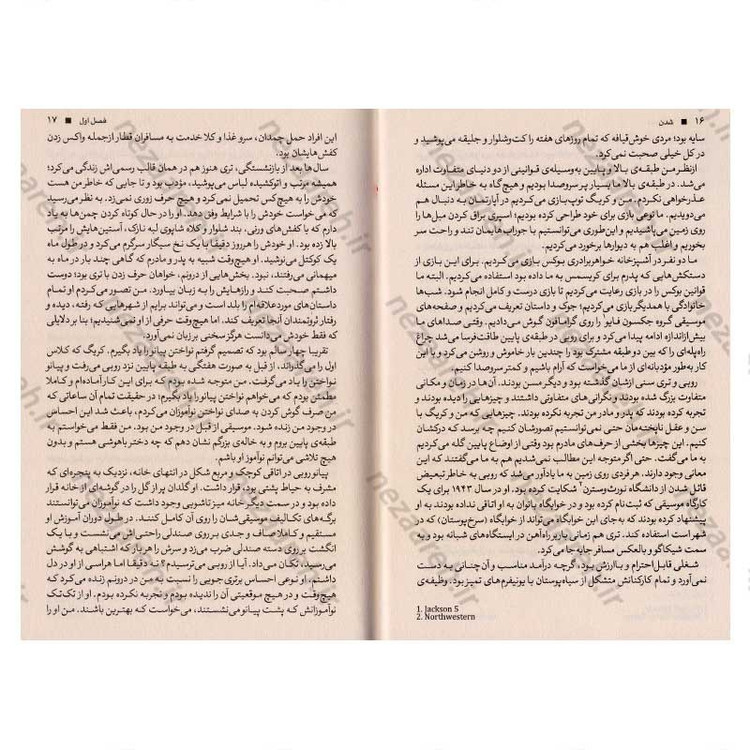 ۱۶ ■ شدن
سایه بود؛ مردی خوش‌قیافه که تمام روزهای هفته را کت‌وشلوار و جلیقه می‌پوشید و
در کل خیلی صحبت نمی‌کرد.
ازنظر من طبقه‌ی بالا و پایین به‌وسیله‌ی قوانینی از دو دنیای متفاوت اداره
می‌شد. در طبقه‌ی بالا ما بسیار پر سروصدا بودیم و هیچ‌گاه به خاطر این مسئله
عذرخواهی نکردم. من و کریگ توپ‌بازی می‌کردیم در آپارتمان به دنبال هم
می‌دویدیم. ما نوعی بازی برای خود طراحی کرده بودیم؛ اسپری براق کردن مبل‌ها را
روی زمین می‌پاشیدیم و این‌طوری می‌توانستیم با جوراب‌هایمان تند و راحت سر
بخوریم و اغلب هم به دیوارها برخورد می‌کردیم.
ما دو نفر در آشپزخانه خواهربرادری بوکس بازی می‌کردیم. برای این بازی از
دستکش‌هایی که پدرم برای کریسمس به ما داده بود استفاده می‌کردیم. البته ما
قوانین بوکس را در بازی رعایت می‌کردیم تا بازی درست و کامل انجام شود. شب‌ها
خانوادگی با همدیگر بازی می‌کردیم؛ جوک و داستان تعریف می‌کردیم و صفحه‌های
موسیقی گروه جکسون فایو را روی گرامافون گوش می‌دادیم. وقتی صداهای ما
بیش‌ازاندازه ادامه پیدا می‌کرد و برای روبی در طبقه‌ی پایین طاقت‌فرسا می‌شد چراغ
راه‌پله‌ای را که بین دو طبقه مشترک بود را چندین بار خاموش و روشن می‌کرد و با این
کار به‌طور مؤدبانه‌ای از ما می‌خواست که آرام باشیم و کمتر سروصدا کنیم.
روبی و تری سنی ازشان گذشته بود و دیگر مسن بودند. آن‌ها در زمان و مکانی
متفاوت بزرگ شده بودند و نگرانی‌های متفاوتی داشتند و چیزهایی را دیده بودند و
تجربه کرده بودند که پدر و مادر من تجربه نکرده بودند. چیزهایی که من و کریگ با
سن و عقل ناپخته‌مان حتی نمی‌توانستیم تصورشان کنیم چه برسد که درکشان
کنیم. این چیزها بخشی از حرف‌های مادرم بود وقتی از اوضاع پایین گله می‌کردیم
به ما می‌گفت. حتی اگر متوجه این مطالب نمی‌شدیم هم به ما می‌گفتند که این
معانی وجود دارند. هر فردی روی زمین به ما یادآور می‌شد که روبی به خاطر تبعیض
قائل شدن از دانشگاه نورث‌وسترن² شکایت کرده بود. او در سال ۱۹۴۳ برای یک
کارگاه موسیقی که ثبت‌نام کرده بود و در خوابگاه بانوان به او اتاقی نداده بودند به او
پیشنهاد کرده بودند که به‌جای این خوابگاه می‌تواند از خوابگاه (سرخ‌پوستان) در
شهر است استفاده کند. تری هم زمانی باربر راه‌آهن در ایستگاه‌های شبانه بود و به
سمت شیکاگو و بالعکس مسافر جابه جا می‌کرد.
شغلی قابل‌احترام و باارزش بود، گرچه درآمد مناسب و آن‌چنانی به دست
نمی‌آورد و تمام کارکنانش متشکل از سیاه‌پوستان با یونیفرم‌های تمیز بود. وظیفه‌ی
1. Jackson 5
2. Northwestern
فصل اول ■ ۱۷
این افراد حمل چمدان، سرو غذا و کلا خدمت به مسافران قطار ازجمله واکس زدن
کفش‌هایشان بود.
سال‌ها بعد از بازنشستگی، تری هنوز هم در همان قالب رسمی‌اش زندگی می‌کرد؛
همیشه مرتب و اتوکشیده لباس می‌پوشید، مؤدب بود و تا جایی که خاطر من هست
خودش را به هیچ‌کس تحمیل نمی‌کرد و هیچ حرف زوری نمی‌زد. به نظر می‌رسید
که می‌خواست خودش را با شرایط وفق دهد. او را در حال کوتاه کردن چمن‌ها به یاد
دارم که با کفش‌های ورنی. بند شلوار و کلاه شاپوی لبه نازک، آستین‌هایش را مرتب
بالا زده بود. او خودش را هرروز دقیقا با یک نخ سیگار سرگرم می‌کرد و در طول ماه
یک کوکتل می‌نوشید. او هیچ‌وقت شبیه به پدر و مادرم که گاهی چند بار در ماه به
میهمانی می‌رفتند، نبود. بخش‌هایی از درونم، خواهان حرف زدن با تری بود؛ دوست
داشتم صحبت کند و رازهایش را به زبان بیاورد. من تصور می‌کردم او تمام
داستان‌های موردعلاقه‌ام را بلد است و می‌تواند برایم از شهرهایی که رفته، دیده و
رفتار ثروتمندان آنجا تعریف کند. اما هیچ‌وقت حرفی از او نمی‌شنیدیم؛ بنا بر دلایلی
که فقط خودش می‌دانست هرگز سخنی بر زبان نمی‌آورد.
تقریبا چهار سالم بود که تصمیم گرفتم نواختن پیانو را یاد بگیرم. کریگ که کلاس
اول را می‌گذراند، از قبل به صورت هفتگی به طبقه‌ی پایین نزد روبی می‌رفت و پیانو
نواختن را یاد می‌گرفت. من متوجه شده بودم که برای این کار آماده‌ام و کاملا
مطمئن بودم که می‌خواهم نواختن پیانو را یاد بگیرم؛ در حقیقت تمام آن ساعاتی که
من صرف گوش کردن به صدای نواختن نوآموزان می‌کردم، باعث شد که این احساس
در وجود من زنده شود. موسیقی از قبل در وجود من بود. من فقط می‌خواستم به
طبقه‌ی پایین بروم و به خاله‌ی بزرگم نشان دهم که چه دختر باهوشی هستم و بدون
هیچ تلاشی می‌توانم نوآموز او باشم.
پیانو روبی در اتاقی کوچک و مربع شکل در انتهای خانه، نزدیک به پنجره‌ای که
مشرف به حیاط پشتی بود، قرار داشت. او گلدان پر از گل را در گوشه‌ای از خانه قرار
داده بود و در سمت دیگر خانه میز تاشویی وجود داشت که نوآموزان می‌توانستند
برگه‌های تکالیف موسیقی‌شان را روی آن کامل کنند. در طول دوران آموزش او
مستقیم و کاملا صاف و جدی بر روی صندلی راحتی‌اش می‌نشست و با یک
انگشت بر روی دسته صندلی ضرب می‌زد و سرش را هر بار که اشتباهی به گوشش
می‌رسید، تکان می‌داد. آیا از روبی می‌ترسیدم؟ نه دقیقا اما هراسی از او در دل
داشتم، او نوعی احساس برتری‌جویی را نسبت به من در درونم زنده می‌کرد که
هیچ‌وقت و در هیچ موقعیتی آن را ندیده بودم و تجربه نکرده بودم. او از تک‌تک
نوآموزانش که پشت پیانو می‌نشستند، می‌خواست که بهترین باشند. من او را